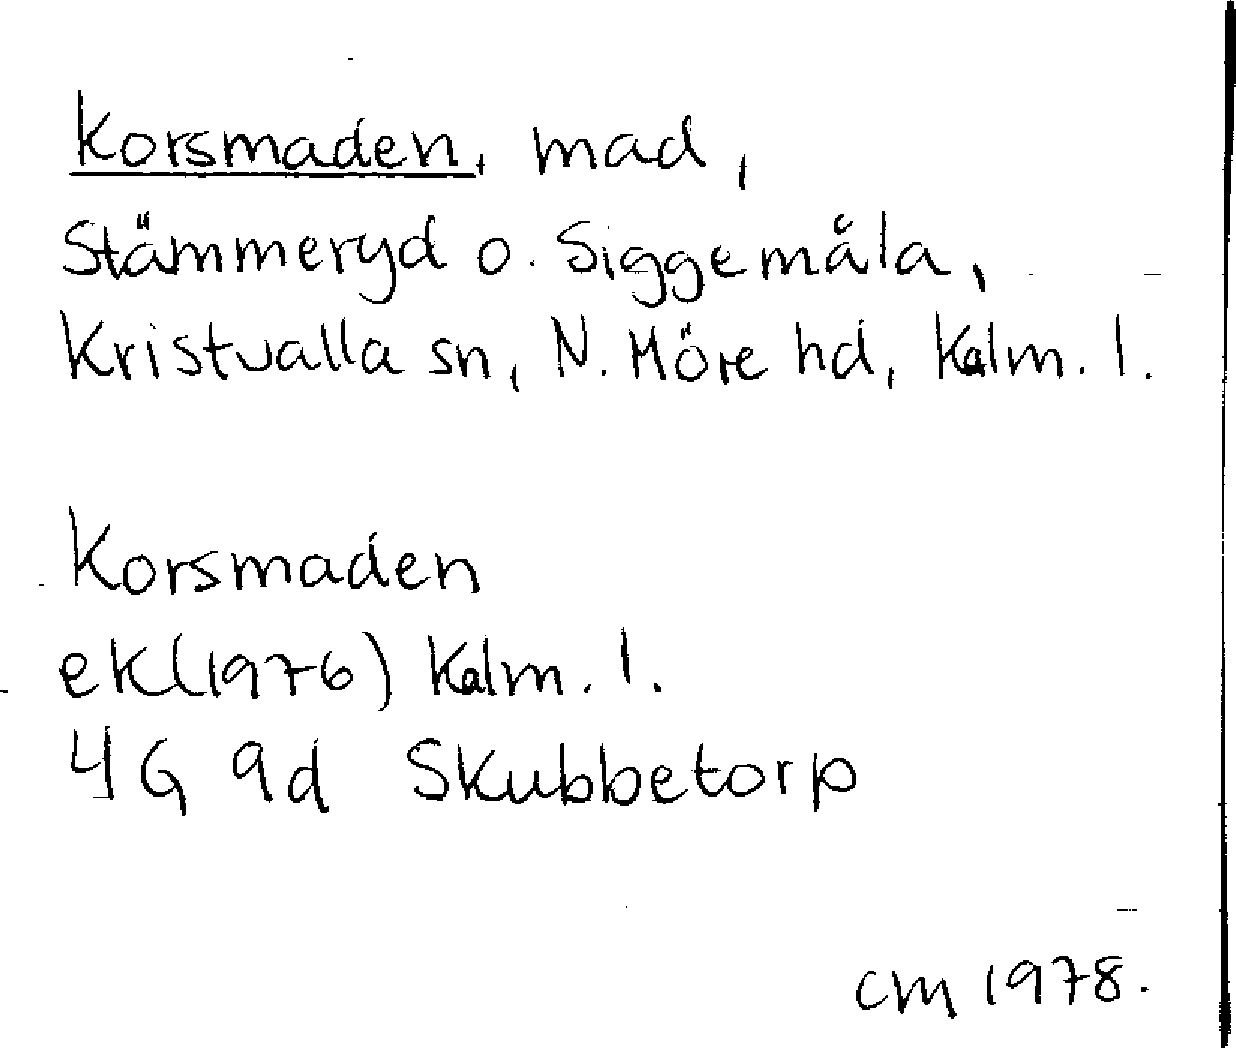 Korsmaden, mad,
Stämmeryd o. Siggemåla,
Kristvalla sn, N. Möre hd, Kalm. l.
Korsmaden
ek(1976) Kalm. l.
4G 9d Skubbetorp
CM 1978.